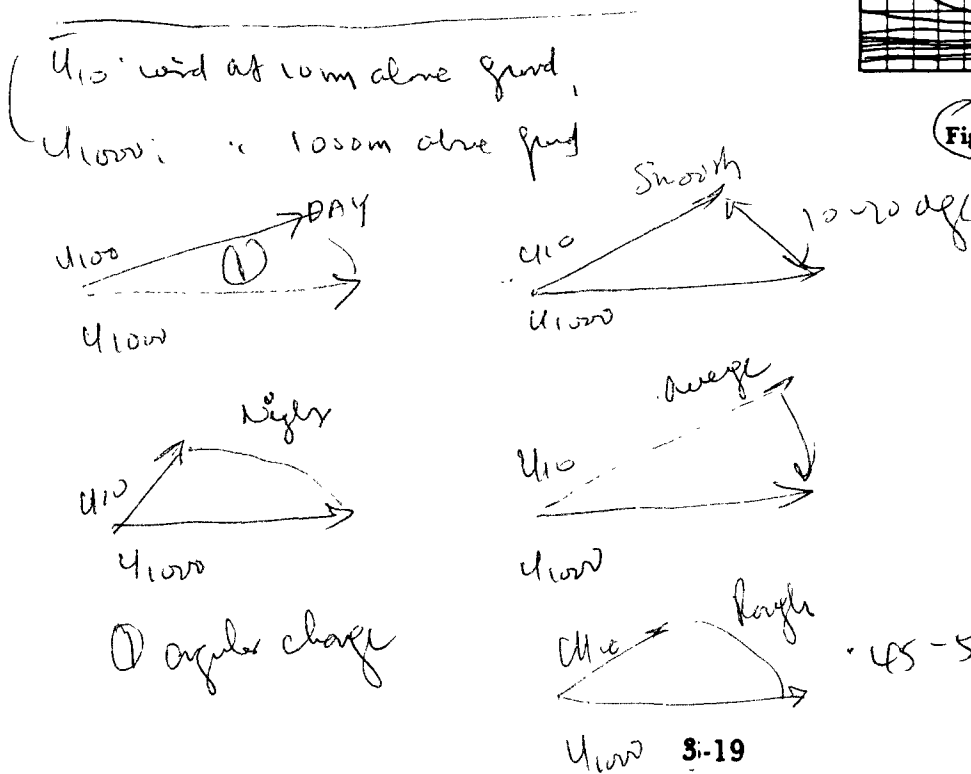 U10: wind at 10m above ground,
U1000: " 1000m above ground
Fig
DAY
U100
①
U1000
Smooth
10-20 deg
U10
U1000
Night
U10
U1000
Average
U10
U1000
① angular change
Rough
U10
45-5
U1000
3-19